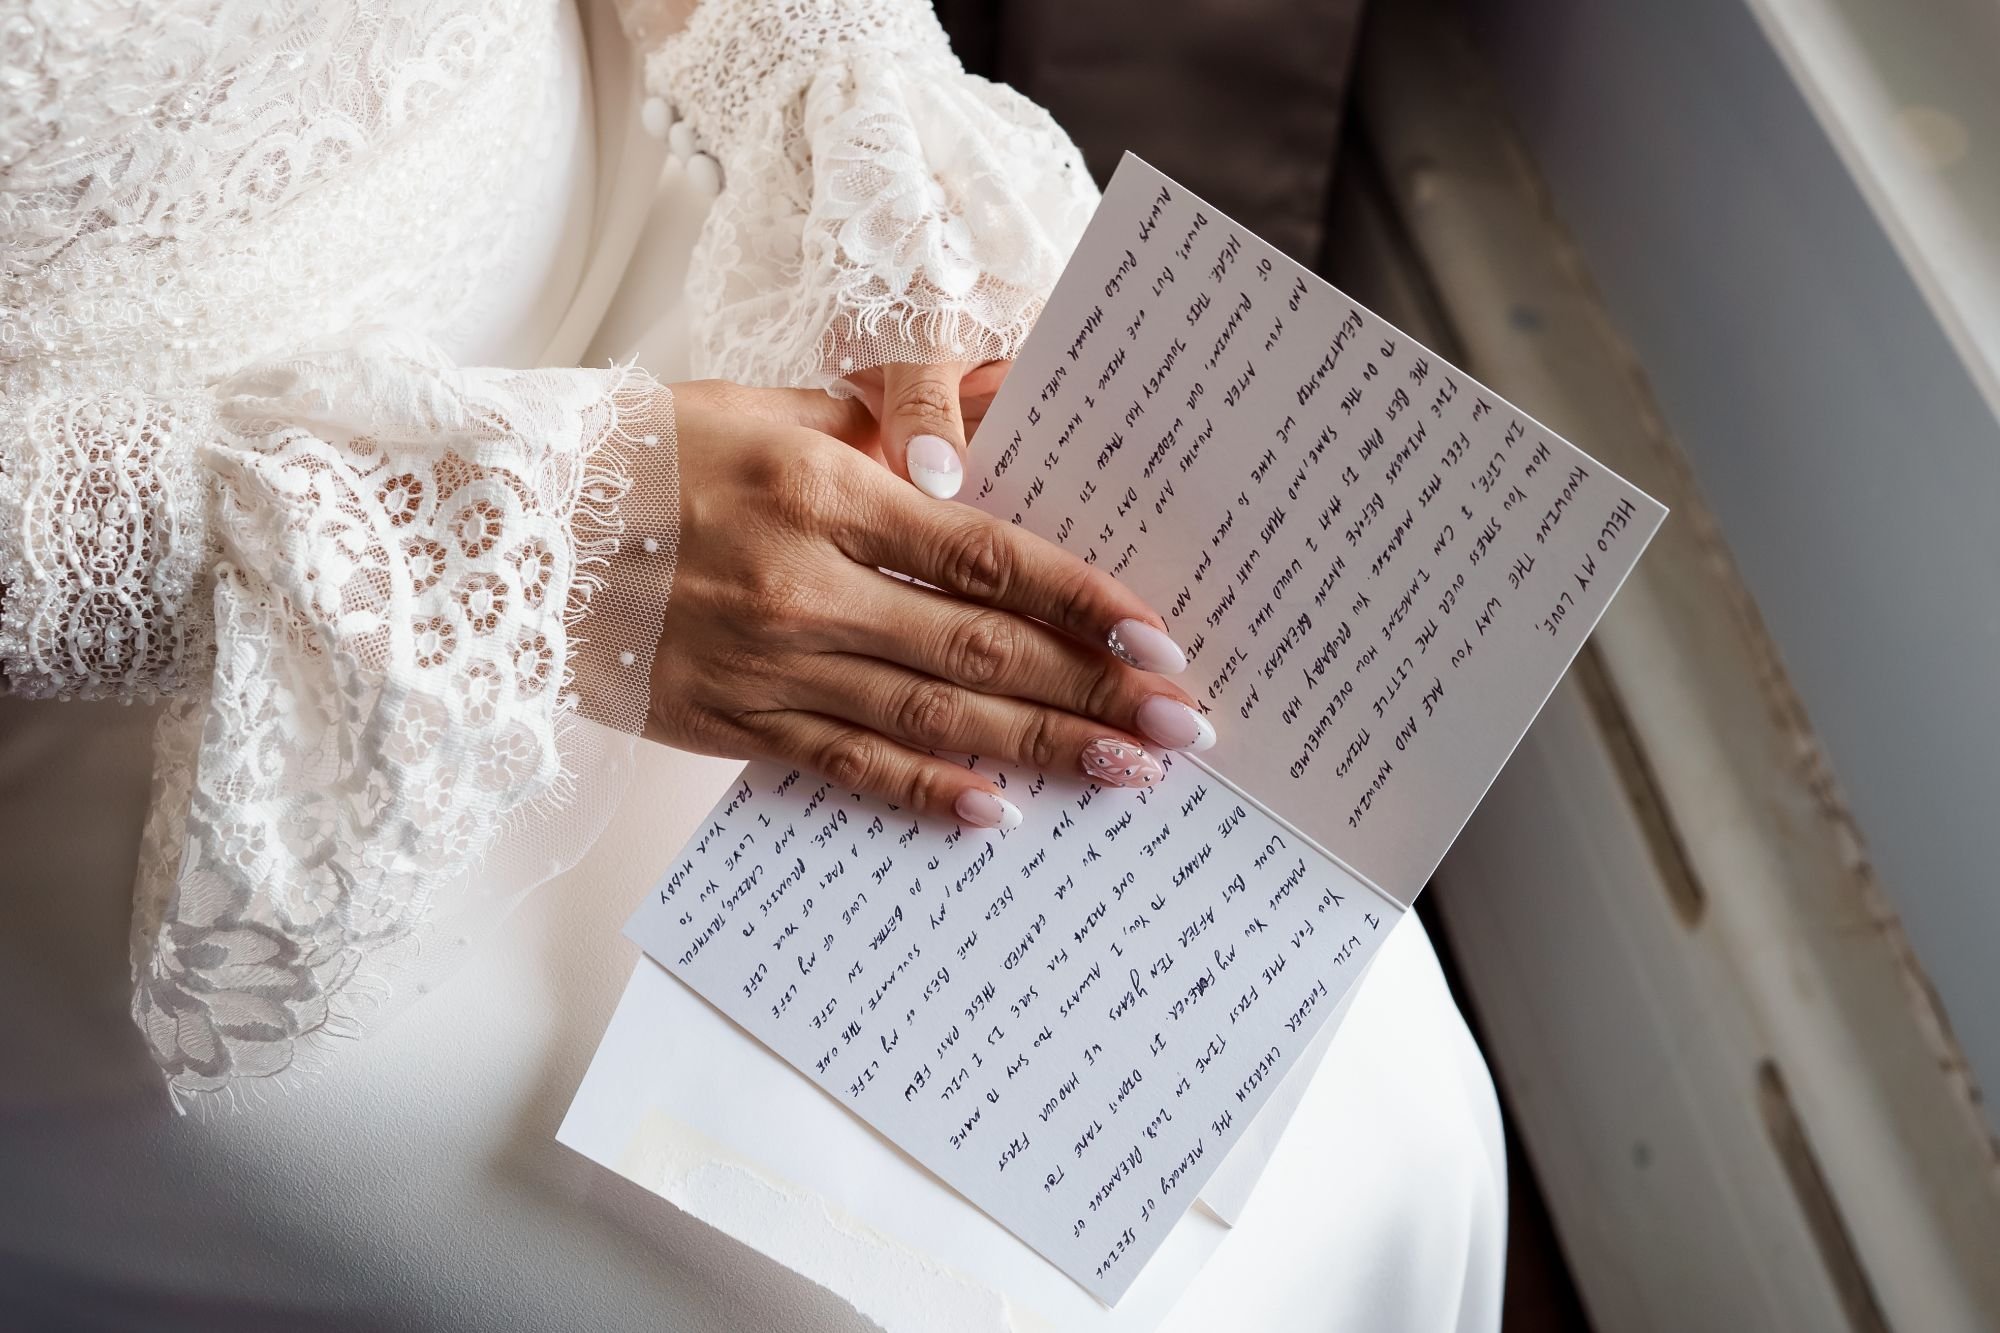 HELLO MY LOVE,
KNOWING THE WAY YOU ARE AND KNOWING
HOW YOU STRESS OVER THE LITTLE THINGS
IN LIFE, I CAN IMAGINE HOW OVERWHELMED
YOU FEEL THIS MORNING. YOU PROBABLY HAD
FIVE MIMOSAS BEFORE HAVING BREAKFAST, AND
THE BEST PART IS THAT I WOULD HAVE JOINED
TO DO THE SAME, AND THATS WHAT MAKES
RELATIONSHIP WE HAVE SO MUCH FUN AND
AND NOW AFTER MONTHS AND A
OF PLANNING, OUR WEDDING DAY IS
HERE. THIS JOURNEY HAS TAKEN ITS
DOWNS, BUT ONE THING I KNOW IS THAT
ALWAYS PULLED THROUGH WHEN IT NEEDED TO.
I WILL FOREVER CHERISH THE MEMORY OF SEEING
YOU FOR THE FIRST TIME IN 2008. DREAMING OF
MAKING YOU MY FOREVER. IT DIDN'T TAKE TOO
LONG BUT AFTER TEN YEARS WE HAD OUR FIRST
DATE THANKS TO YOU, I ALWAYS TOO SHY TO MAKE
THAT MOVE. ONE THING FOR SURE IS I WILL
TAKE YOU FOR GRANTED. THESE PAST FEW
YOU HAVE BEEN THE BEST OF MY LIFE.
MY FRIEND, MY SOULMATE, THE ONE
ME TO DO BETTER IN LIFE.
ARE THE LOVE OF MY LIFE
BE A PART OF YOUR LIFE
BABE. PROMISE TO
AND CARING, TRUTHFUL
I LOVE YOU SO
FROM YOUR HUBBY